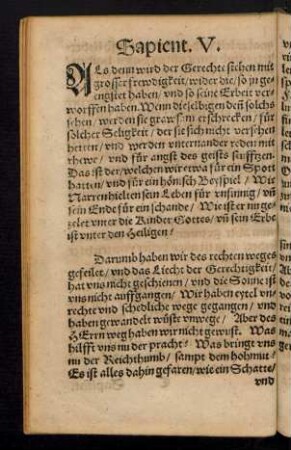 Sapient. V.
ALs denn wird der Gerechte stehen mit
grosser frewdigkeit/ wider die/ so jn ge-
engstet haben/ vnd so seine Erbeit ver-
worffen haben. Wenn dieselbigen deñ solchs
sehen/ werden sie grawsam erschrecken/ für
sölcher Seligkeit/ der sie sich nicht versehen
hetten/ vnd werden vnternander reden mit
rhewe/ vnd für angst des geists seufftzen.
Das ist der/ welchen wir etwa für ein Spott
hatten/ vnd für ein hönisch Beyspiel/ Wir
Narren hielten sein Leben für vnsinnig/ vñ
sein Ende für ein schande/ Wie ist er nu ge-
zelet vnter die Kinder Gottes/ vñ sein Erbe
ist vnter den Heiligen/
Darumb haben wir des rechten weges
gefeilet/ vnd das Liecht der Gerechtigkeit/
hat vns nicht geschienen/ vnd die Sonne ist
vns nicht auffgangen/ Wir haben eytel vn-
rechte vnd schedliche wege gegangen/ vnd
haben gewandelt wüste vnwege/ Aber des
HErrn weg haben wir nicht gewust. Was
hilfft vns nu der pracht/ Was bringt vns
nu der Reichthumb/ sampt dem hohmut/
Es ist alles dahin gefaren/ wie ein Schatte/
vnd